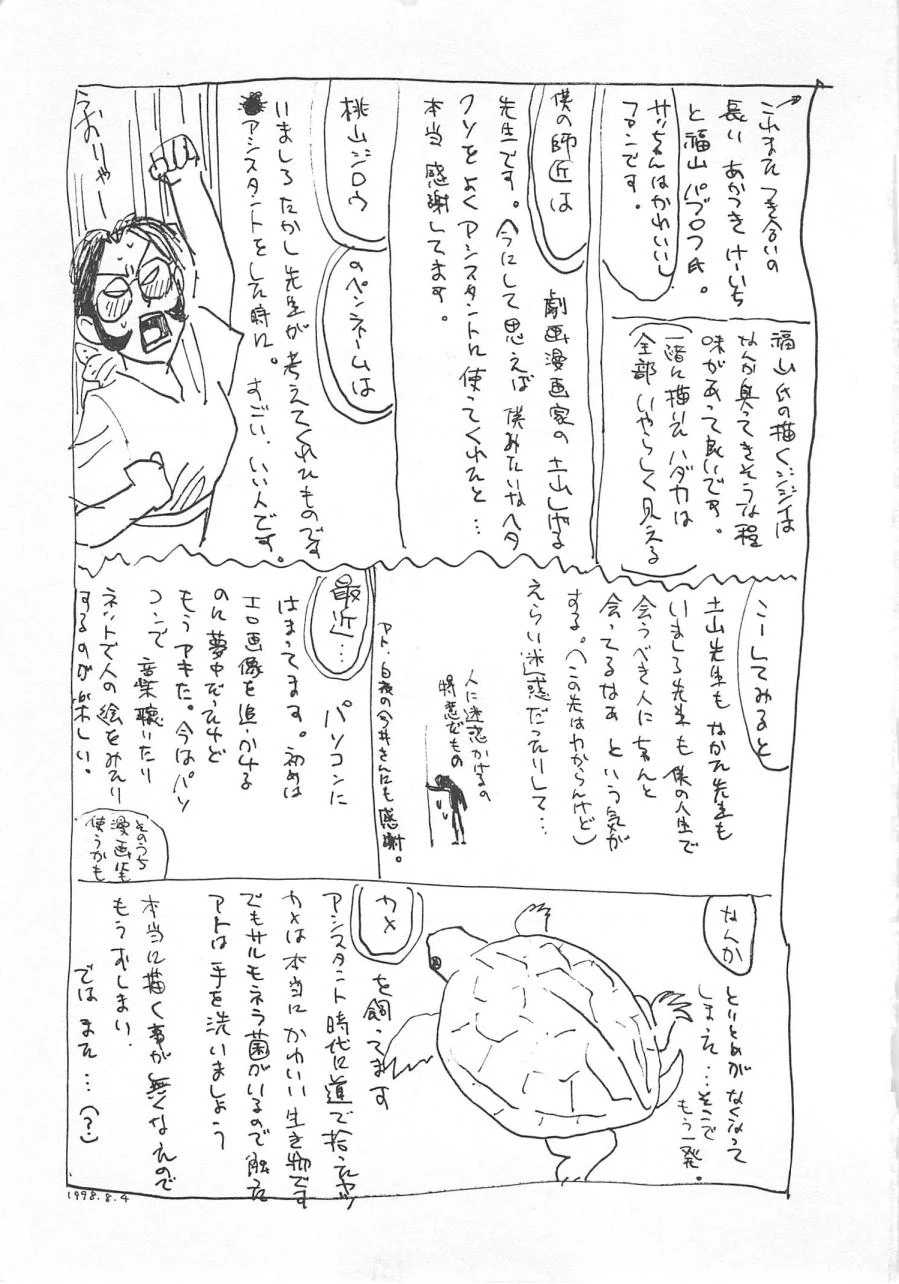 これまたつき合いの
長い あかつきけーいち
と福山パブロフ氏。
サッちんはかわいい
ファンです。
福山氏の描くジジイは
なんか臭ってきそうな程
味があって良いです。
一緒に描いた ハダカは
全部 いやらしく見える
僕の師匠は
劇画漫画家の 土山しげる
先生です。今にして思えば 僕みたいなヘタ
クソをよくアシスタントに使ってくれたと…
本当 感謝してます。
桃山ジロウ
のペンネームは
いましろたかし先生が考えてくれたものです
アシスタントをした時に。 すごい、いい人です。
うおーりゃー
こーしてみると
土山先生も なかた先生も
いましろ先生も 僕の人生で
会うべき人にちゃんと
会ってるなぁ という気が
する。(この先はわからんけど)
えらい迷惑だったりして…
人に迷惑かけるの
得意だもの
アト、白夜の今井さんにも感謝。
最近…
パソコンに
はまってます。初めは
エロ画像を追いかける
のに夢中だったけど
もうアキた。今はパソ
コンで 音楽聴いたり
ネットで人の絵をみたり
するのが楽しい。
そのうち
漫画にも
使うかも
なんか
とりとめが なくなって
しまった…そこで
もう一発。
カメ
を飼ってます
アシスタント時代に道で拾ったヤツ
カメは本当にかわいい生き物です
でもサルモネラ菌がいるので触った
アトは 手を洗いましょう
本当に描く事が無くなったので
もうおしまい.
では また…(?)
1998.8.4